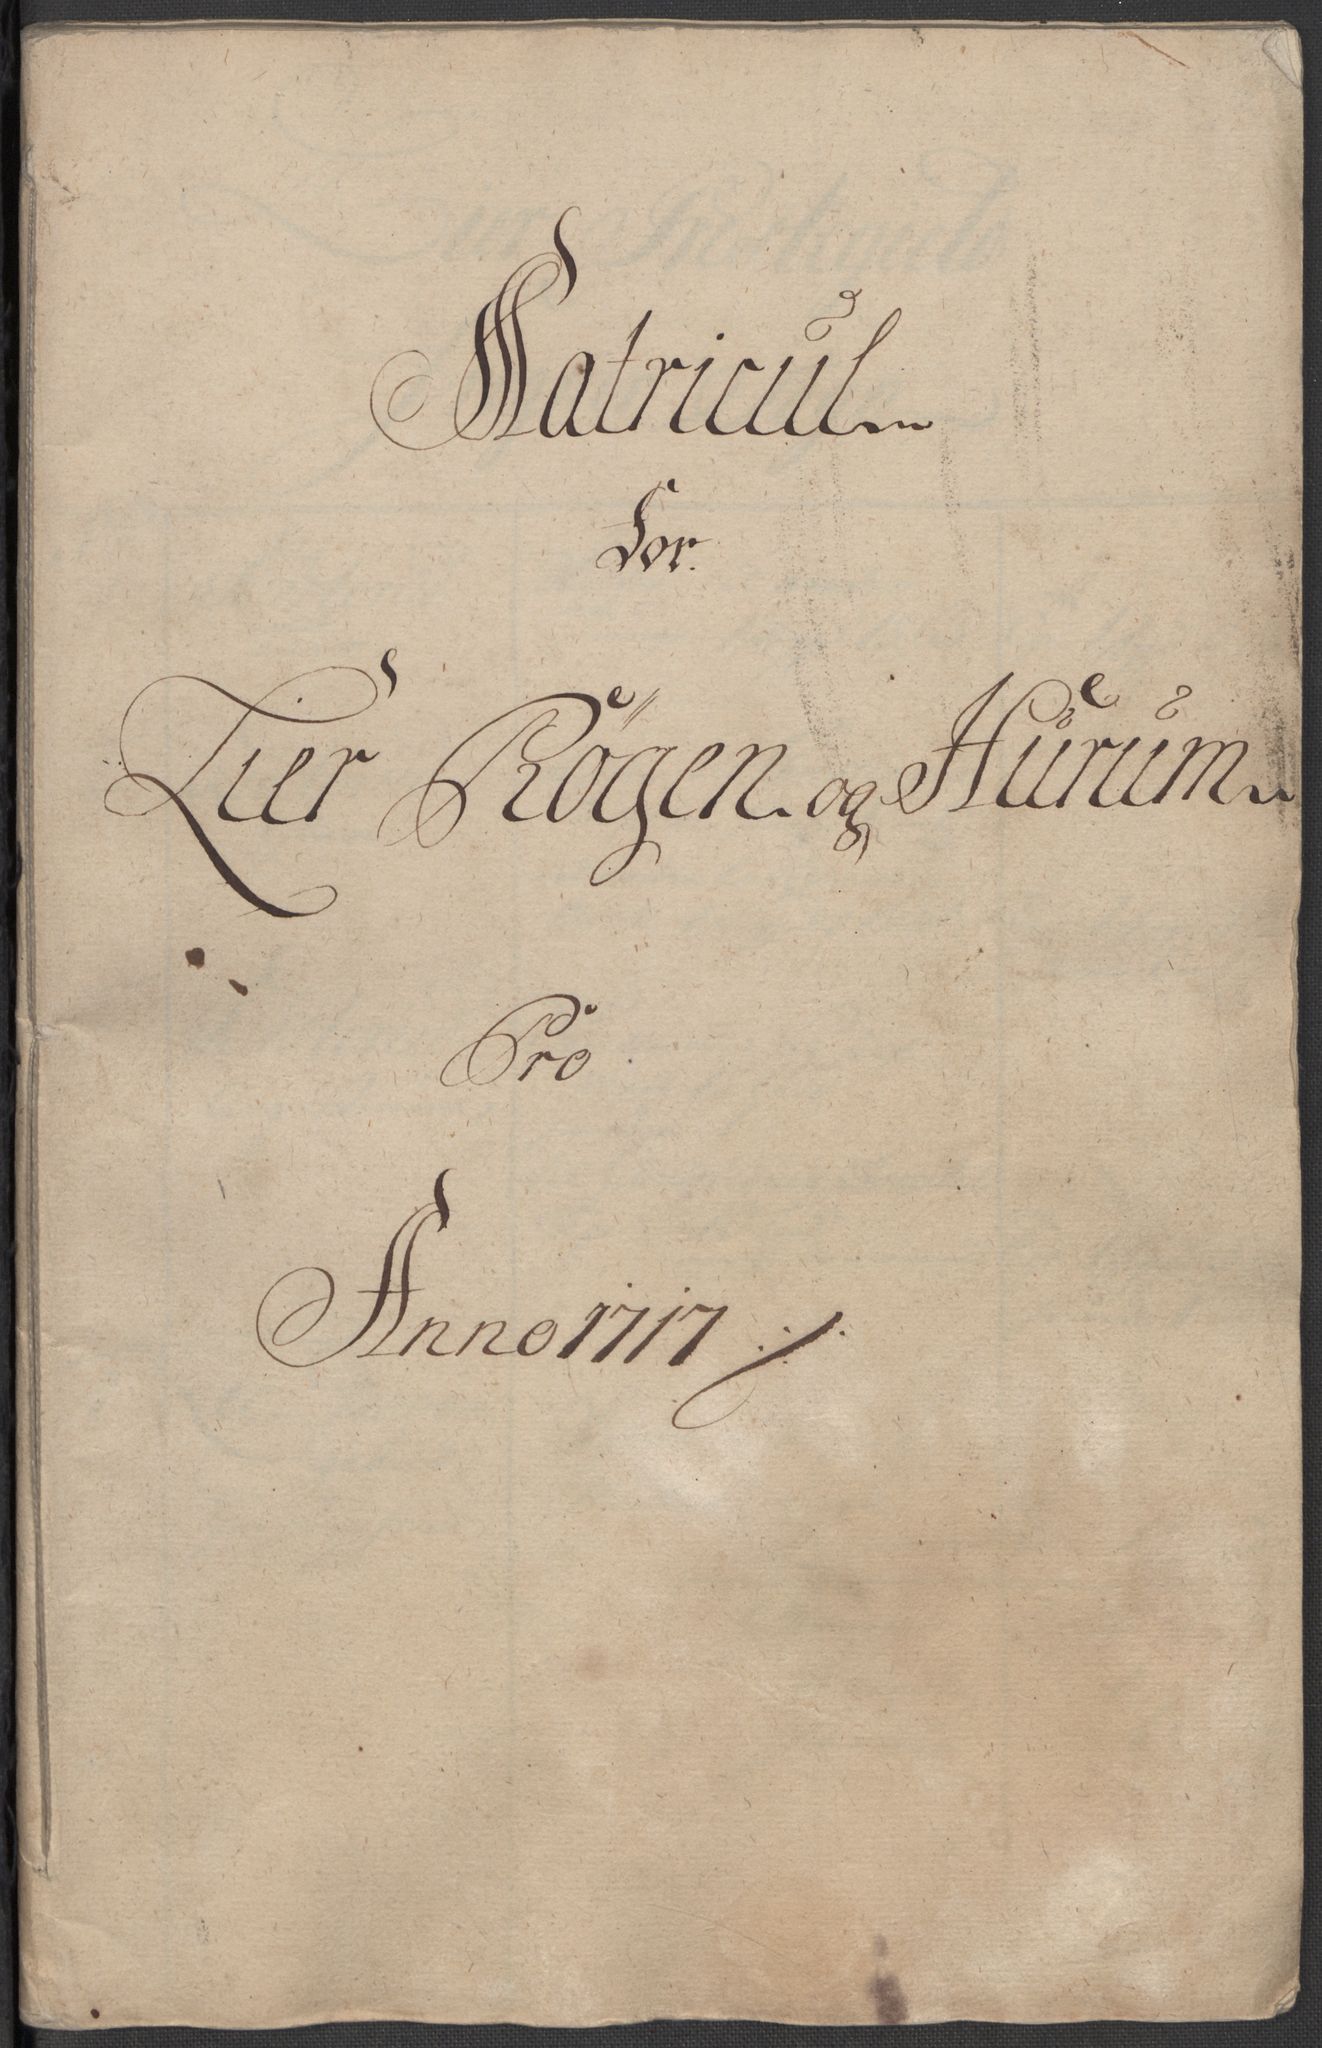 Matricul
For
Lier Røgen og Hurum
Pro
Anno 1717